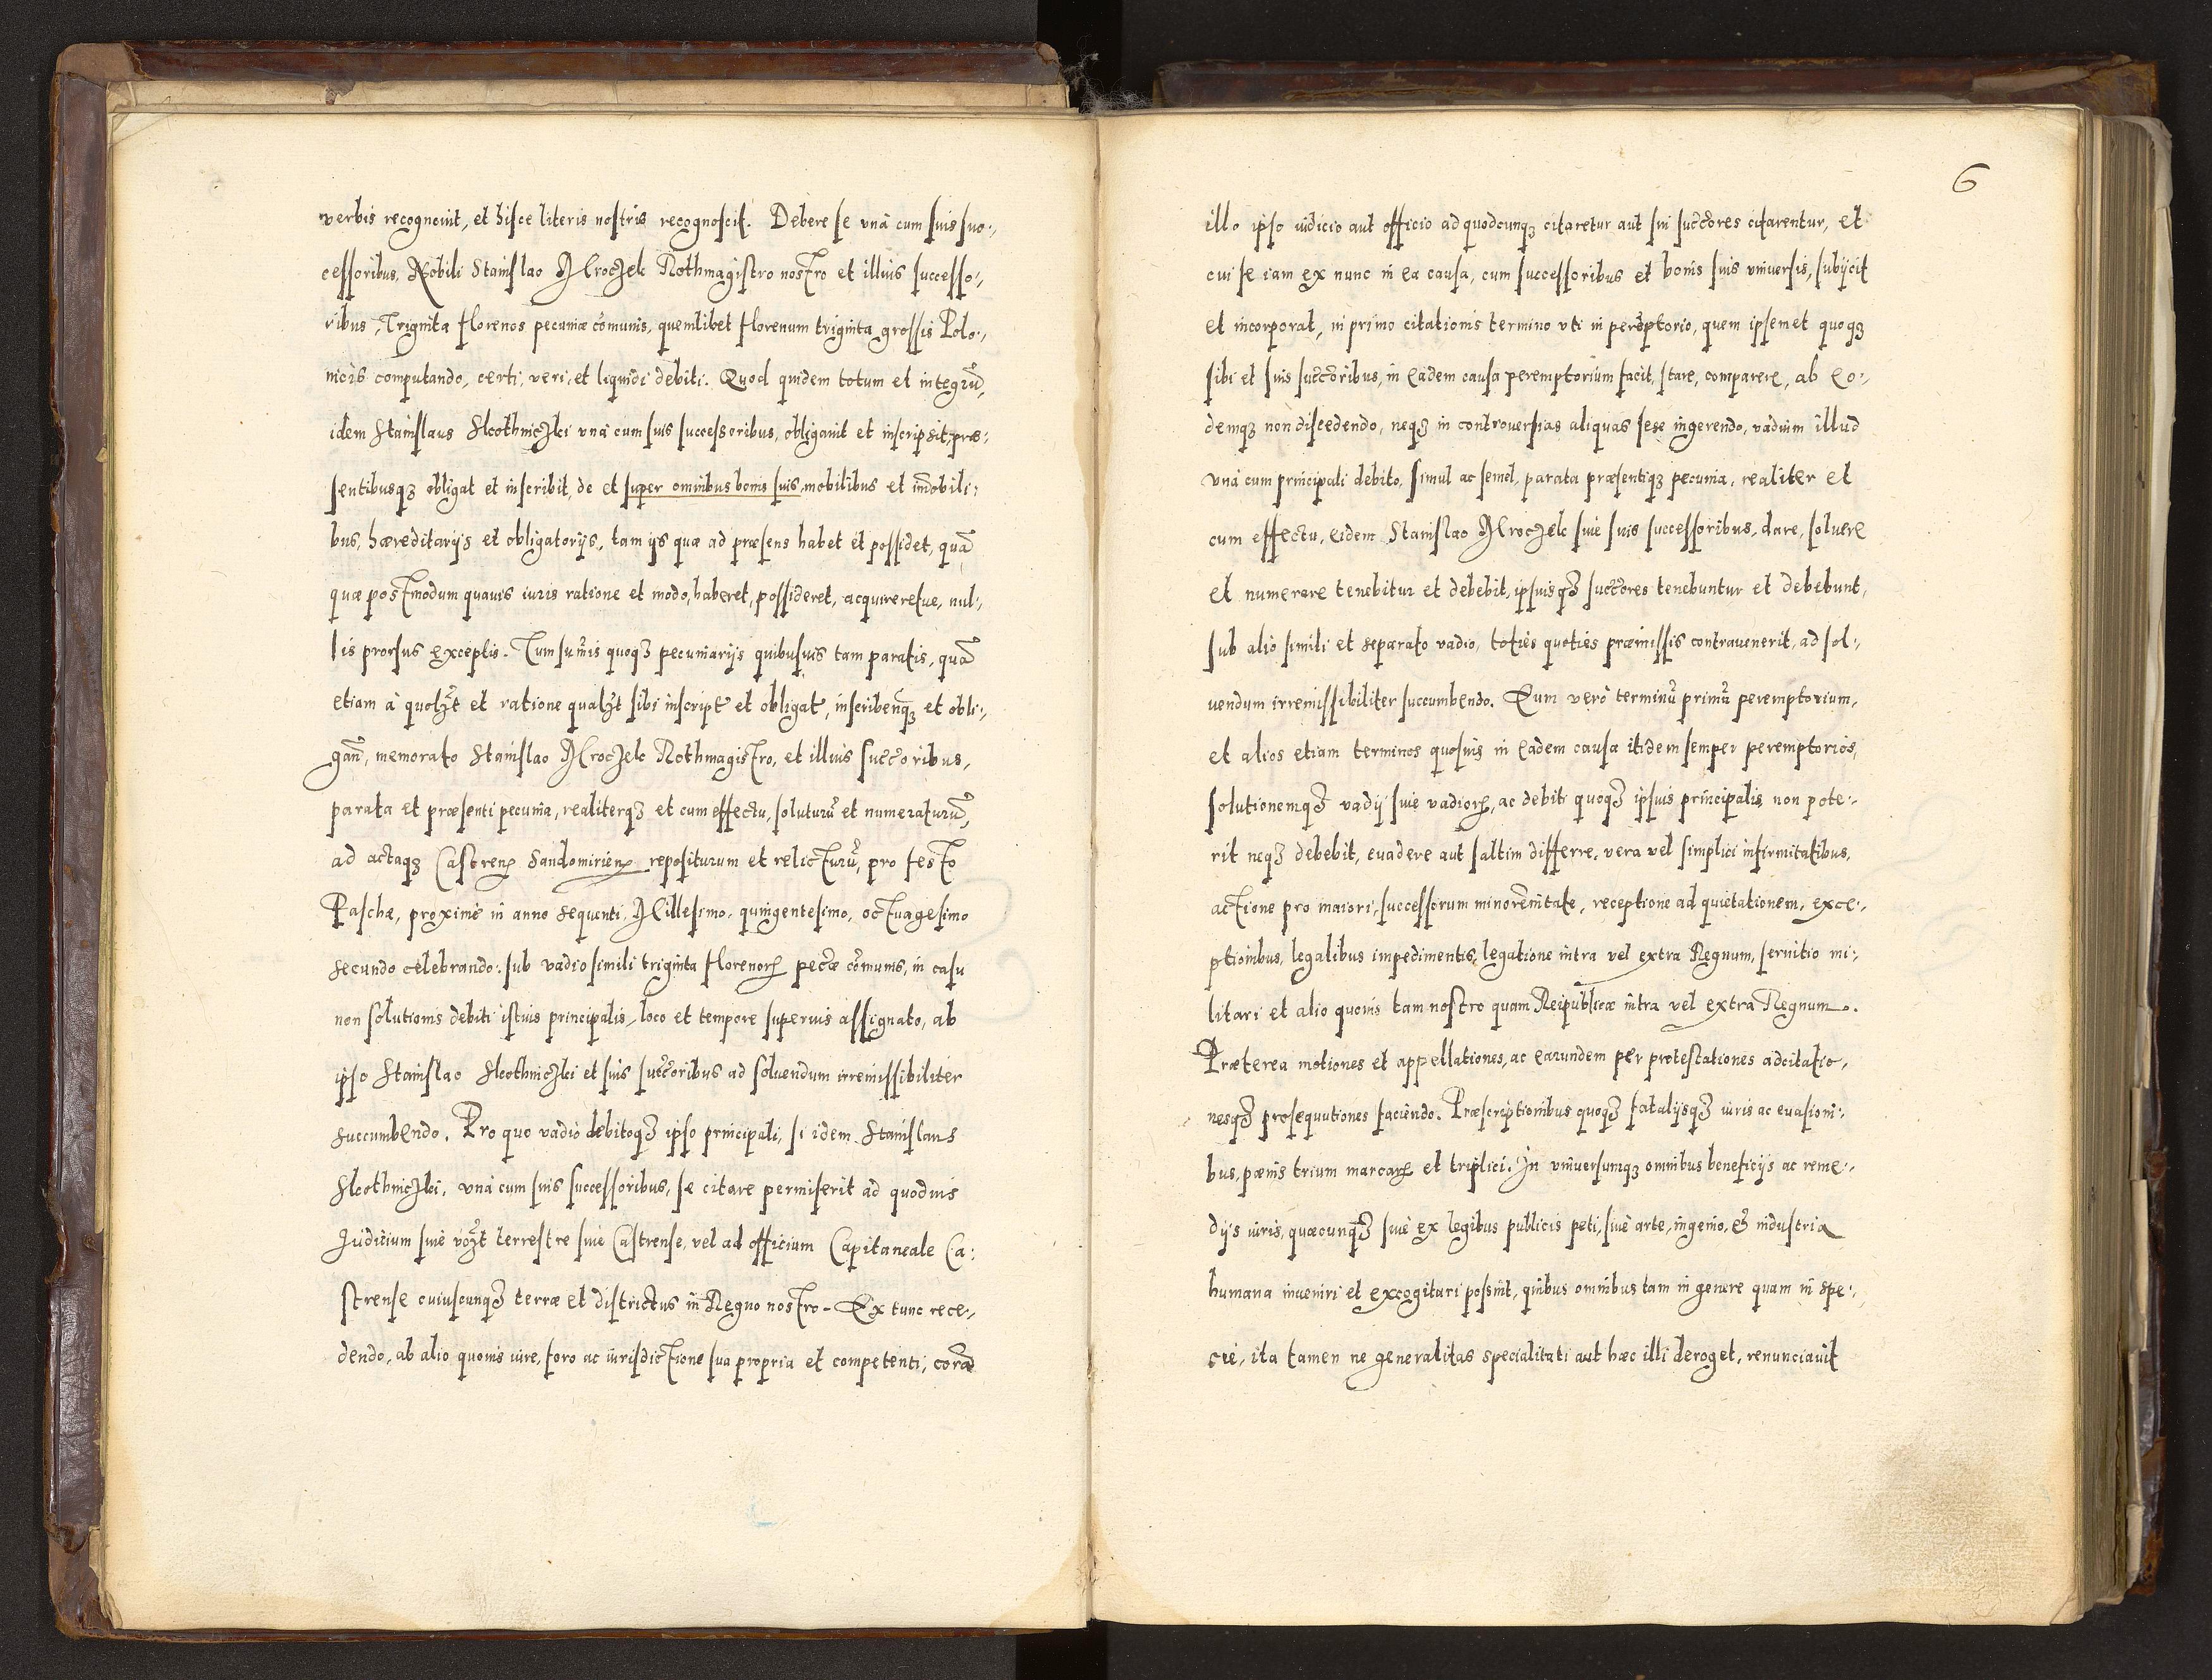 verbis recognouit, et hisce literis nostris recognoscit. Debere se vnà cum suis suc:,
cessoribus, Nobili Stanislao Mroczek Rothmagistro nostro et illius successo:,
ribus, Triginta florenos pecuniæ cõmunis, quemlibet florenum triginta grossis Polo:,
nicis computando, certi, veri, et liquidi debiti. Quod quidem totum et integrũ,
idem Stanislaus vnà cum suis successoribus, obligauit et inscripsit, præ:,
sentibusqȝ obligat et inscribit, de et super omnibus bonis suis, mobilibus et im̃obili:,
bus, hæreditarijs et obligatorijs, tam ijs quæ ad præsens habet et possidet, quã
quæ postmodum quauis iuris ratione et modo, haberet, possideret, acquireretue, nul:,
lis prorsus exceptis. Tum sum̃is quoqȝ pecuniarijs quibusuis tam paratis, quã
etiam à quolȝt et ratione qualȝt sibi inscript et obligat, inscribenqȝ et obli:,
gañ, memorato Stanislao Mroczek Rothmagistro, et illius succõribus,
parata et præsenti pecunia, realiterqȝ et cum effectu, soluturũ et numeraturũ,
ad actaqȝ Castren Sandomirien repositurum et relicturũ, pro festo
Paschæ, proximè in anno sequenti, Millesimo, quingentesimo, octuagesimo
secundo celebrando: sub vadio simili triginta florenorꝝ pecñæ cõmunis, in casu
non solutionis debiti istius principalis, loco et tempore superius assignato, ab
ipso Stanislao et suis succõribus ad soluendum irremissibiliter
succumbendo. Pro quo vadio debitoqȝ ipso principali, si idem Stanislaus
vnà cum suis successoribus, se citare permiserit ad quoduis
Iudicium siuè võȝt terrestre siuè Castrense, vel ad officium Capitaneale Ca:
strense cuiuscunqȝ terræ et districtus in Regno nostro. Ex tunc rece:,
dendo, ab alio quouis iure, foro ac iurisdictione sua propria et competenti, corã
6
illo ipso iudicio aut officio ad quodcunqȝ citaretur aut sui succõres citarentur, et
cui se iam ex nunc in ea causa, cum successoribus et bonis suis vniuersis, subijcit
et incorporat, in primo citationis termino vti in perẽptorio, quem ipsemet quoqȝ
sibi et suis succõribus, in eadem causa peremptorium facit, stare, comparere, ab eo:,
demqȝ non discedendo, neqȝ in controuersias aliquas sese ingerendo, vadium illud
vnà cum principali debito, simul ac semel, parata præsentiqȝ pecunia, realiter et
cum effectu, eidem Stanislao Mroczek siuè suis successoribus, dare, soluere
et numerare tenebitur et debebit, ipsiusqȝ succõres tenebuntur et debebunt,
sub alio simili et separato vadio, toties quoties præmissis contrauenerit, ad sol:,
uendum irremissibiliter succumbendo. Eum verò terminũ primũ peremptorium,
et alios etiam terminos quosuis in eadem causa itidem semper peremptorios,
solutionemqȝ vadij siuè vadiorꝝ, ac debiti quoqȝ ipsius principalis non pote:,
rit neqȝ debebit, euadere aut saltim differre, vera vel simplici infirmitatibus,
actione pro maiori, successorum minorẽnitate, receptione ad quietationem, exce:,
ptionibus, legalibus impedimentis, legatione intra vel extra Regnum, seruitio mi:,
litari et alio quouis tam nostro quam Reipublicæ intra vel extra Regnum.
Præterea motiones et appellationes, ac earundem per protestationes adcitatio:,
nesqȝ prosequutiones faciendo. Præscriptionibus quoqȝ fatalijsqȝ iuris ac euasioni:,
bus, pænis trium marcarꝝ et triplici. In vniuersumqȝ omnibus beneficijs ac reme:,
dijs iuris, quæcunqȝ siuè ex legibus publicis peti, siuè arte, ingenio, et industria
humana inueniri et excogitari possint, quibus omnibus tam in genere quam in spe:,
cie, ita tamen ne generalitas specialitati aut hæc illi deroget, renunciauit